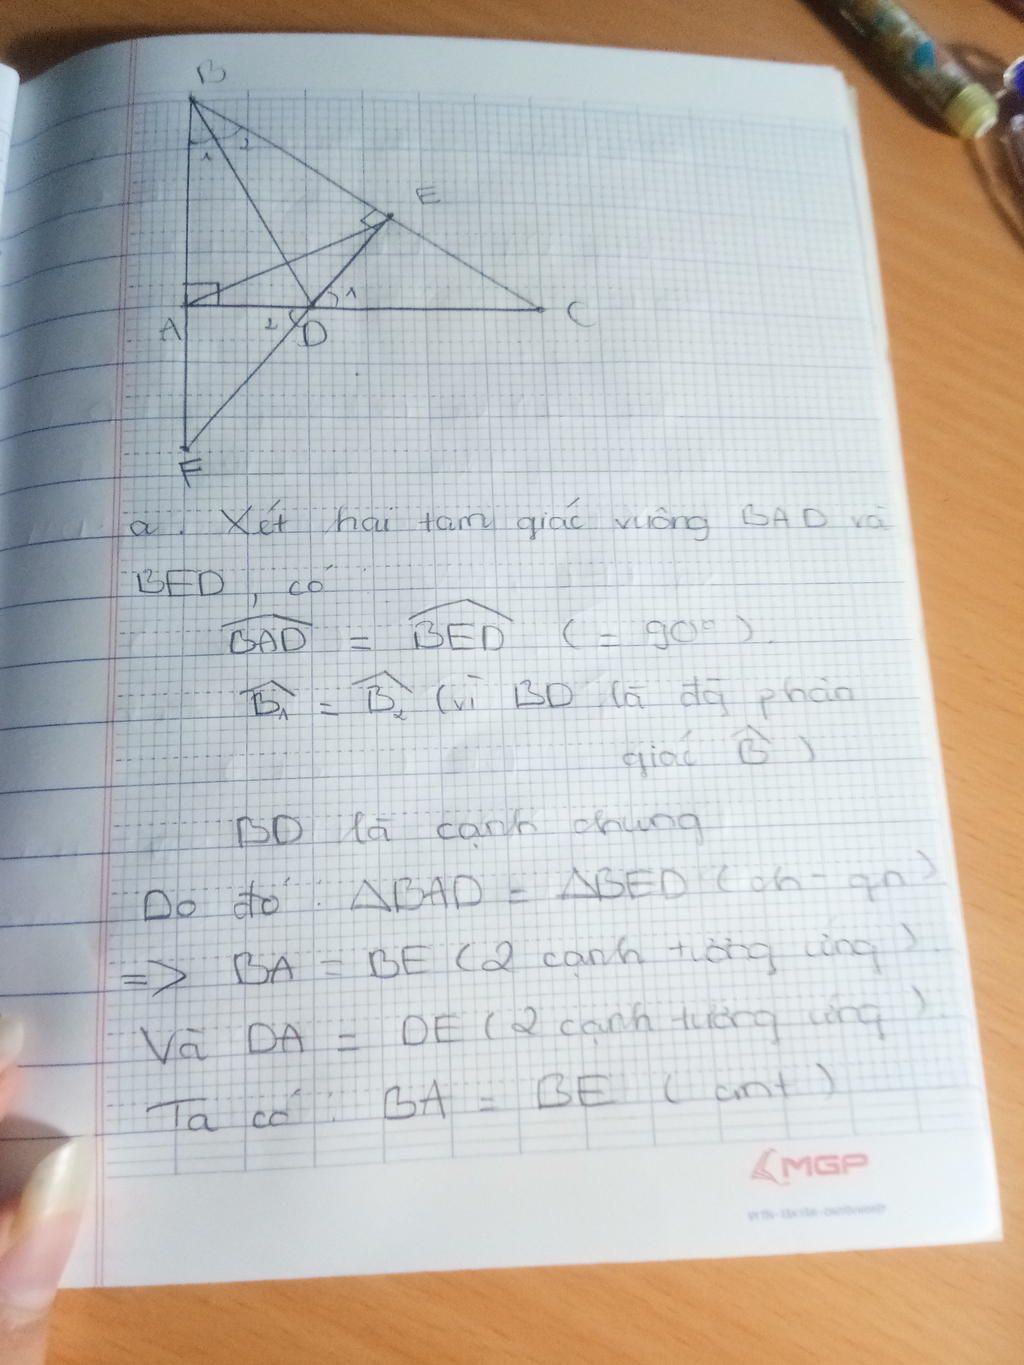 B
1 2
E
1
A
2 D
C
F
a. Xét hai tam giác vuông BAD và
BED, có
BAD = BED (= 90°).
B1 = B2 (vì BD là đg phân
giác B)
BD là cạnh chung
Do đó : ΔBAD = ΔBED (ch - gn)
=> BA = BE (2 cạnh tương ứng).
Và DA = DE (2 cạnh tương ứng).
Ta có : BA = BE (cmt)
MGP